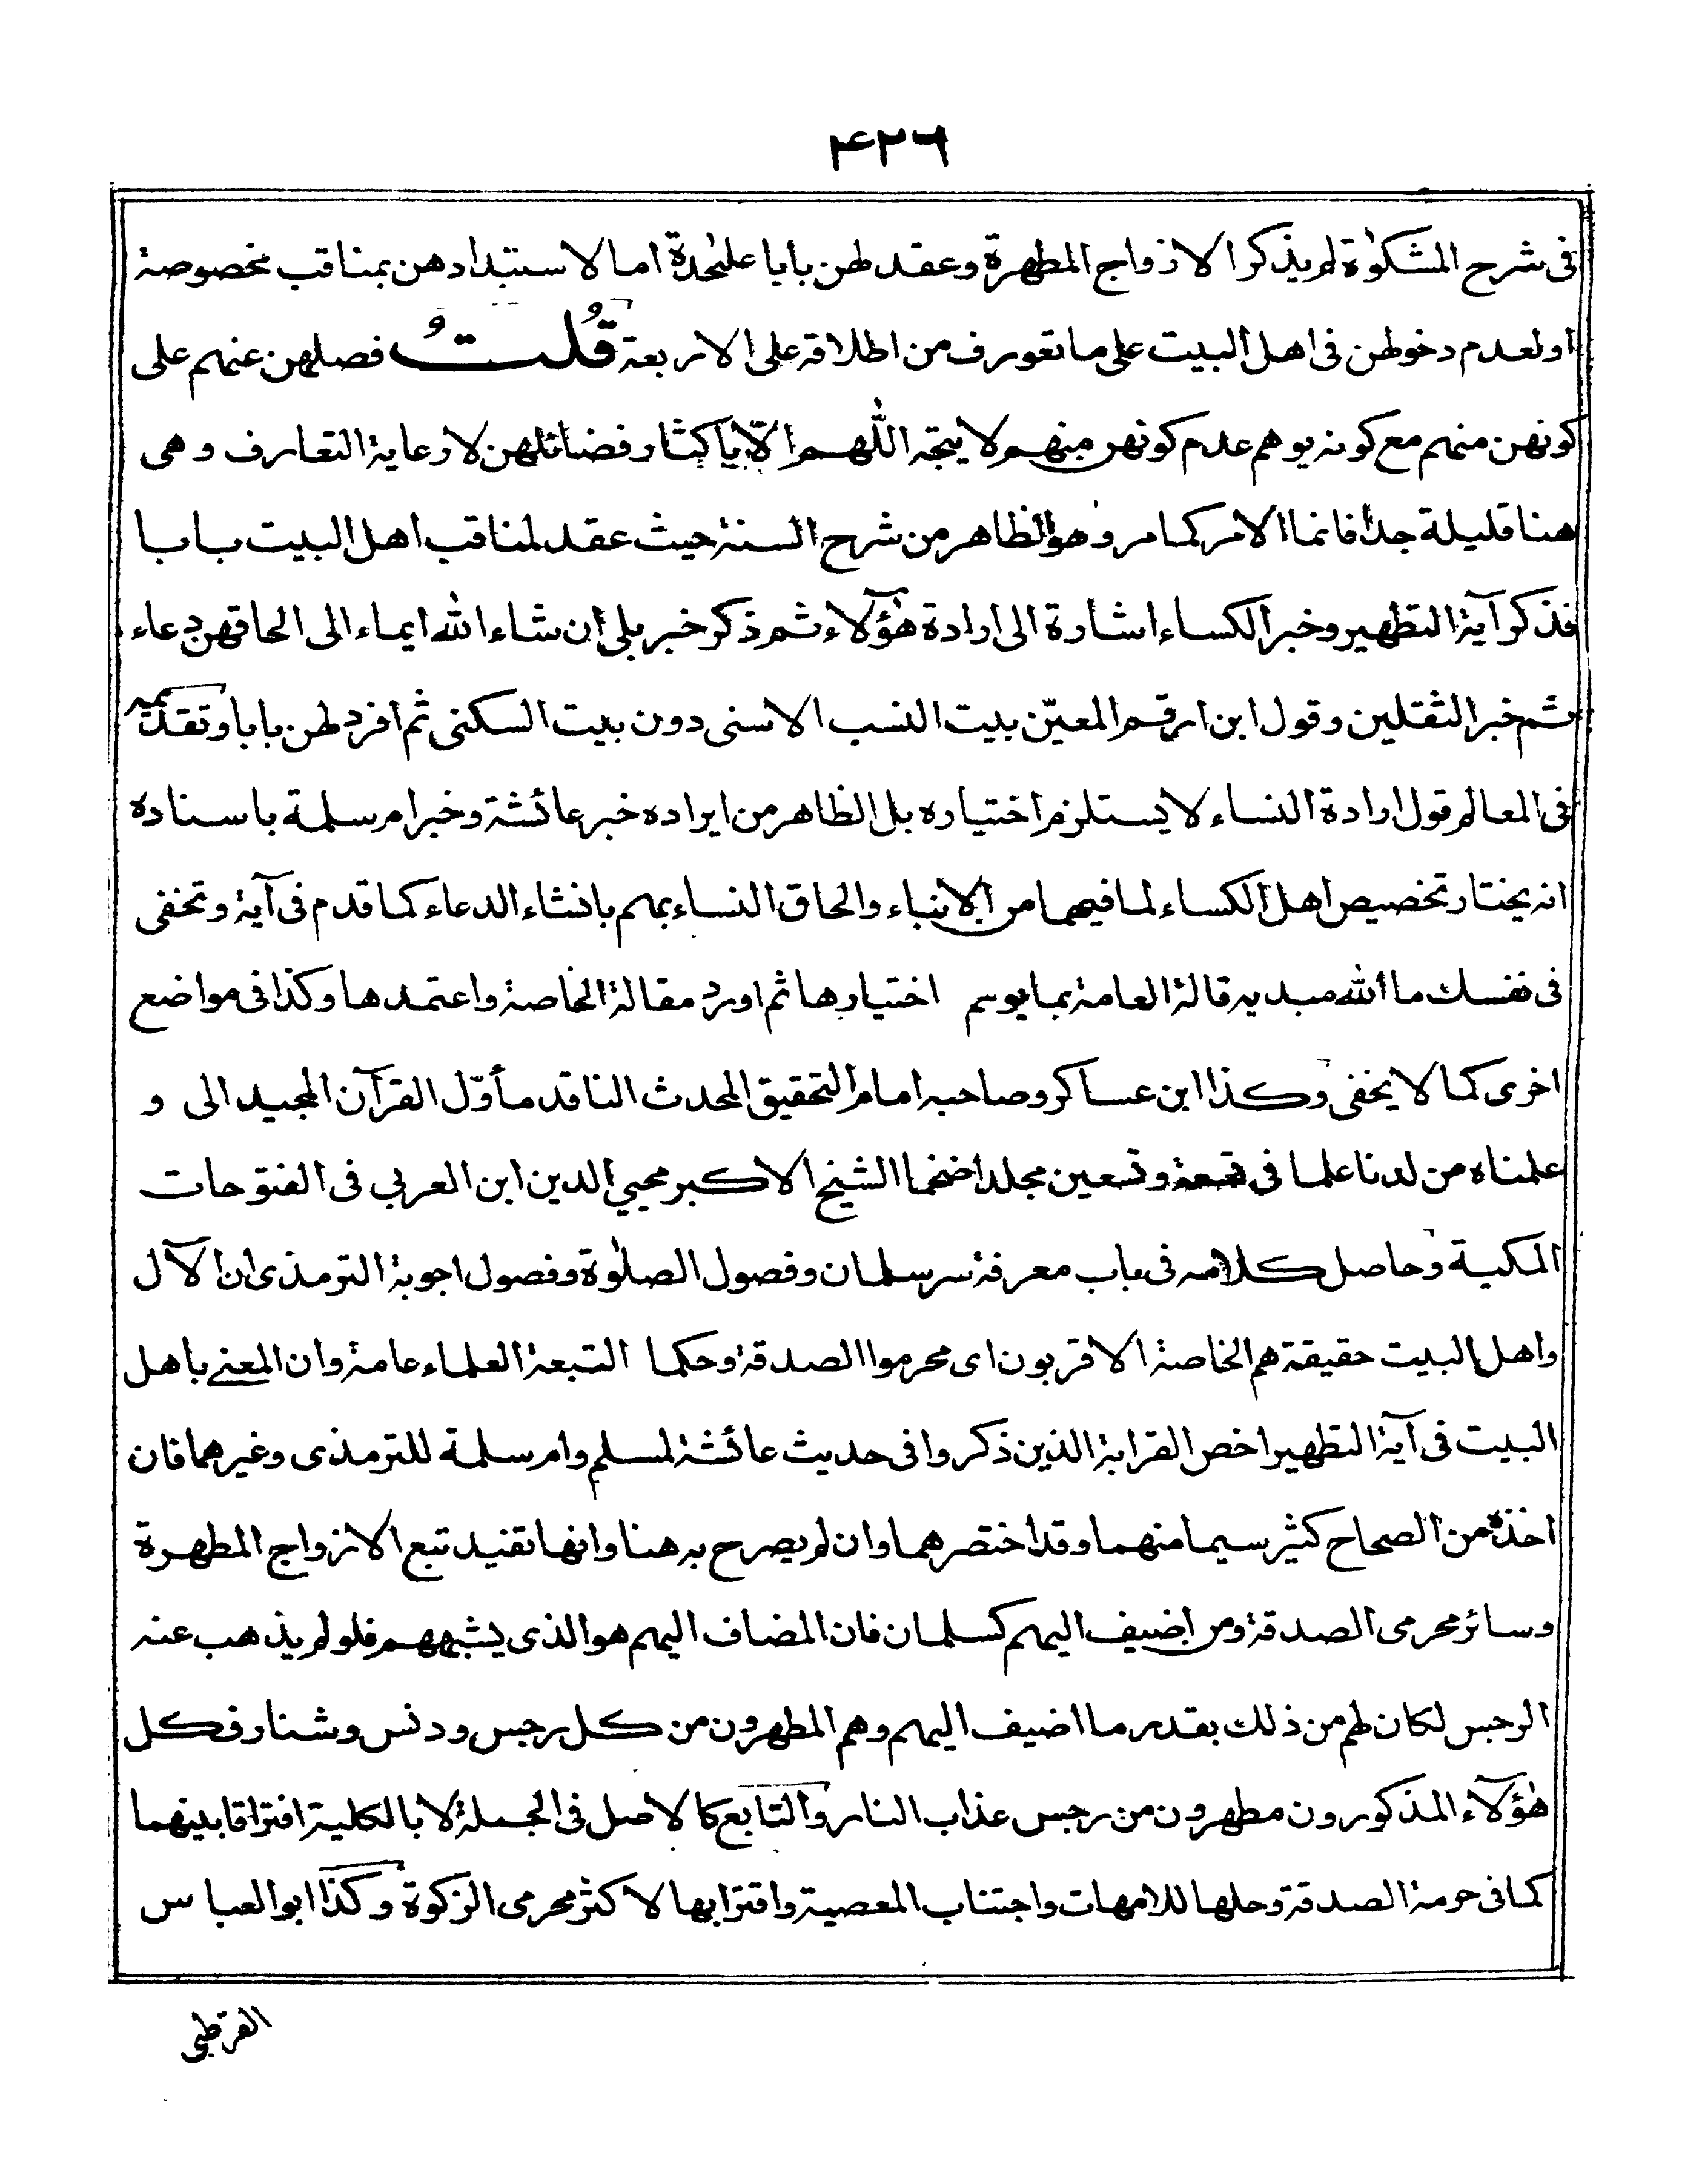 ۴۲۶
فى شرح المشكوٰة لم يذكر الازواج المطهرة وعقد لهن بابا عليٰحدة اما لاستبدادهن بمناقب مخصوصة
او لعدم دخولهن فى اهل البيت على ما تعورف من اطلاقه على الاربعة قُلتُ فصلهن عنهم على
كونهن منهم مع كونه يوهم عدم كونهن منهم لا يتجه اللّٰهم الّا باكثار فضائلهن لا رعاية التعارف وهى
هنا قليلة جدا فانما الامر كما مر وهو الظاهر من شرح السنة حيث عقد لمناقب اهل البيت بابا
فذكر آية التطهير وخبر الكساء اشارة الى ارادة هٰؤلآء ثم ذكر خبر بلى ان شاء الله ايماء الى الحاقهن دعاء
ثم خبر الثقلين وقول ابن ارقم المعيّن بيت النسب الاسنى دون بيت السكنى ثم افرد لهن بابا وتقديمه
فى المعالم قول ارادة النساء لا يستلزم اختياره بل الظاهر من ايراده خبر عائشة وخبر ام سلمة باسناده
انه يختار تخصيص اهل الكساء لما فيهما من الانباء والحاق النساء بهم بانشاء الدعاء كما قدم فى آية وتخفى
فى نفسك ما الله مبديه قالة العامة بما يوهم اختيارها ثم اورد مقالة الخاصة واعتمدها وكذا فى مواضع
اخرى كما لا يخفى وكذا ابن عساكر وصاحبه امام التحقيق المحدث الناقد مأوّل القرآن المجيد الى و
علمناه من لدنا علما فى تسعة وتسعين مجلدا ضخما الشيخ الاكبر محيي الدين ابن العربي فى الفتوحات
المكية وحاصل كلامه فى باب معرفة سر سلمان وفصول الصلوٰة وفصول اجوبة الترمذى ان الآل
واهل البيت حقيقة هم الخاصة الاقربون اى محرموا الصدقة وحكما التبعة العلماء عامة وان المعنے باهل
البيت فى آية التطهير اخص القرابة الذين ذكروا فى حديث عائشة لمسلم وام سلمة للترمذى وغيرهما فان
اخذه من الصحاح كثير سيما منهما وقد اختصرهما وان لم يصرح به هنا وانها تفيد تبع الازواج المطهرة
وسائر محرمى الصدقة ومن اضيف اليهم كسلمان فان المضاف اليهم هو الذى يشبههم فلو لم يذهب عنه
الرجس لكان لهم من ذلك بقدر ما اضيف اليهم وهم المطهرون من كل رجس ودنس وشنار فكل
هٰؤلآء المذكورون مطهرون من رجس عذاب النار والتابع كالاصل فى الجملة لا بالكلية افتراقا بينهما
كما فى حرمة الصدقة وحلها للامهات واجتناب المعصية واقترابها لاكثر محرمى الزكوة وكذا ابو العباس
القرطبى